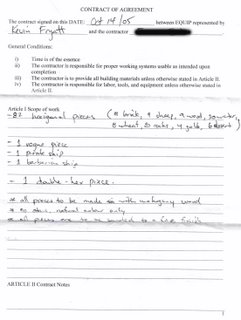 CONTRACT OF AGREEMENT
The contract signed on this DATE: Oct 14/05 between EQUIP represented by
Kevin Fryatt and the contractor
General Conditions:
i) Time is of the essence
ii) The contractor is responsible for proper working systems usable as intended upon
completion
iii) The contractor is to provide all building materials unless otherwise stated in Article II.
iv) The contractor is responsible for labor, tools, and equipment unless otherwise stated in
Article II.
Article I Scope of work
- 82 hexagonal pieces (8 brick, 9 sheep, 9 wood,
8 wheat, 4 gold,
- 1 rogue piece
- 1 pirate ship
- 1 barbarian ship
- 1 double-hex piece.
* all pieces to be made with mahogany wood
* no stain, natural colour only
* all pieces are to be sanded to a fine finish
ARTICLE II Contract Notes
1